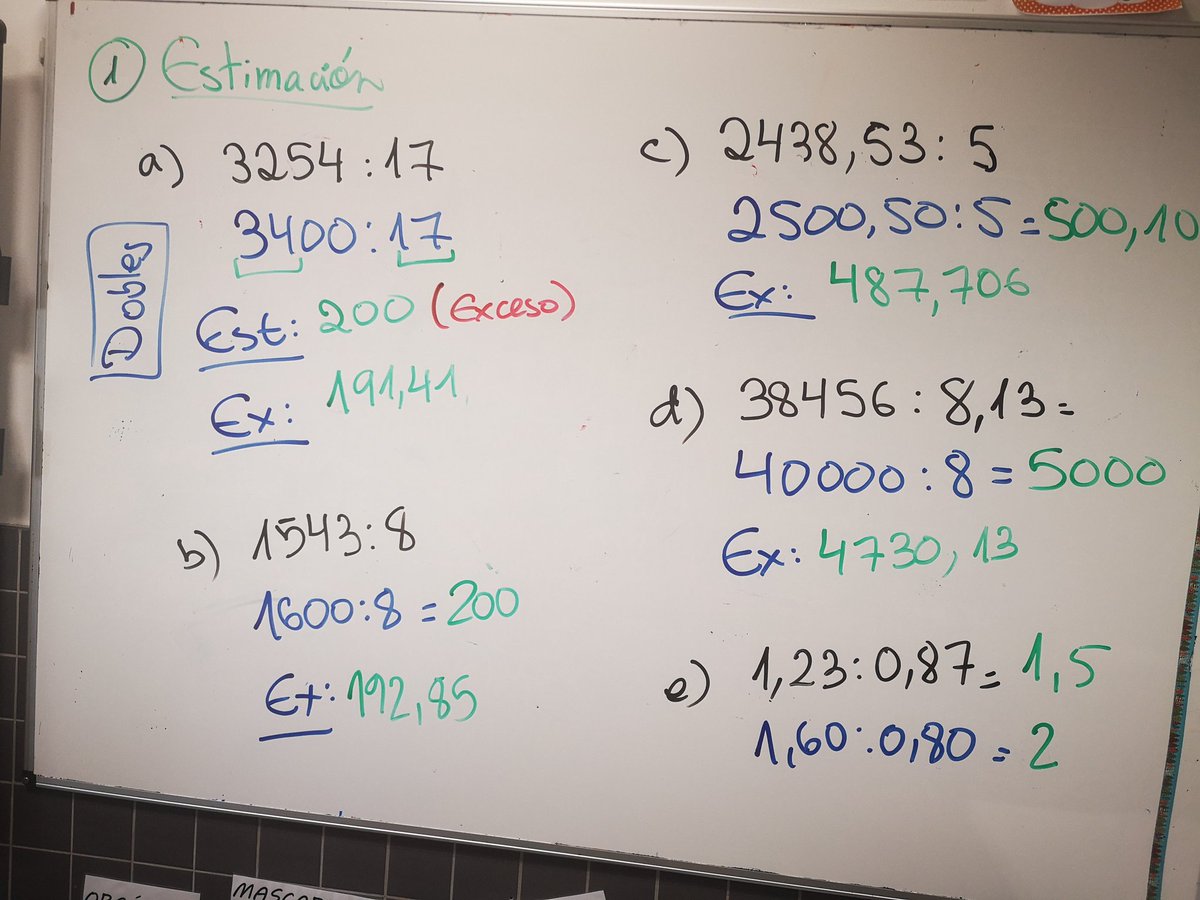 1 Estimación
a) 3254 : 17
3400 : 17
Dobles
Est: 200 (Exceso)
Ex: 191,41
b) 1543 : 8
1600 : 8 = 200
Ex: 192,85
c) 2438,53 : 5
2500,50 : 5 = 500,10
Ex: 487,706
d) 38456 : 8,13 =
40000 : 8 = 5000
Ex: 4730,13
e) 1,23 : 0,87 = 1,5
1,60 : 0,80 = 2